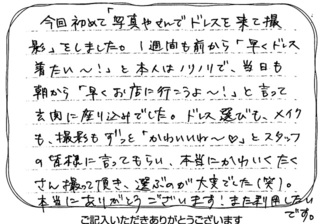 今回初めて「写真やせんでドレスを来て撮
影」をしました。1週間も前から「早くドレス
着たい〜！」と本人はノリノリで、当日も
朝から「早くお店に行こうよ〜！」と言って
玄関に座り込みでした。ドレス選びも、メイク
も、撮影もずっと「かわいいね〜♡」とスタッフ
の皆様に言ってもらい、本当にかわいくたく
さん撮って頂き、選ぶのが大変でした(笑)。
本当にありがとうございます！また利用したい
です。
ご記入いただきありがとうございます